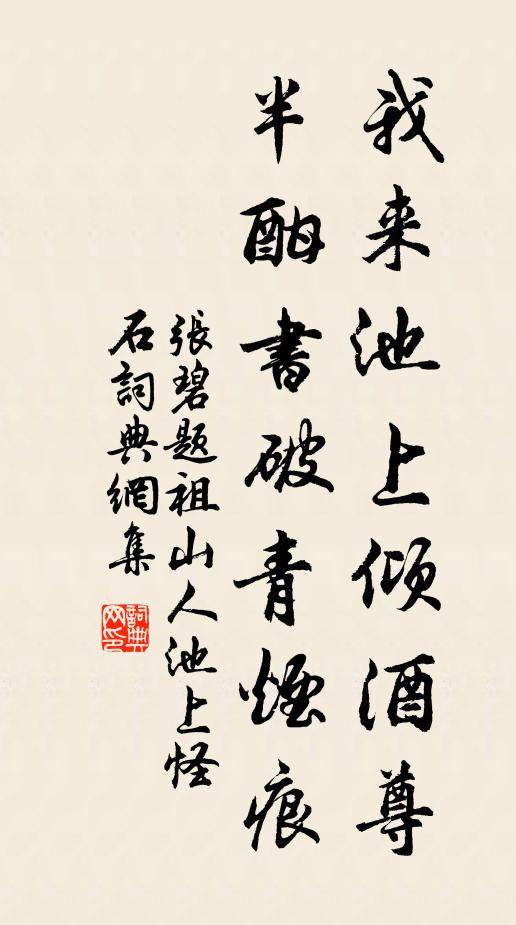 我来池上倾酒尊
半酣書破青煙痕
張碧題祖山人池上怪
石詞典網集
詞典
网印